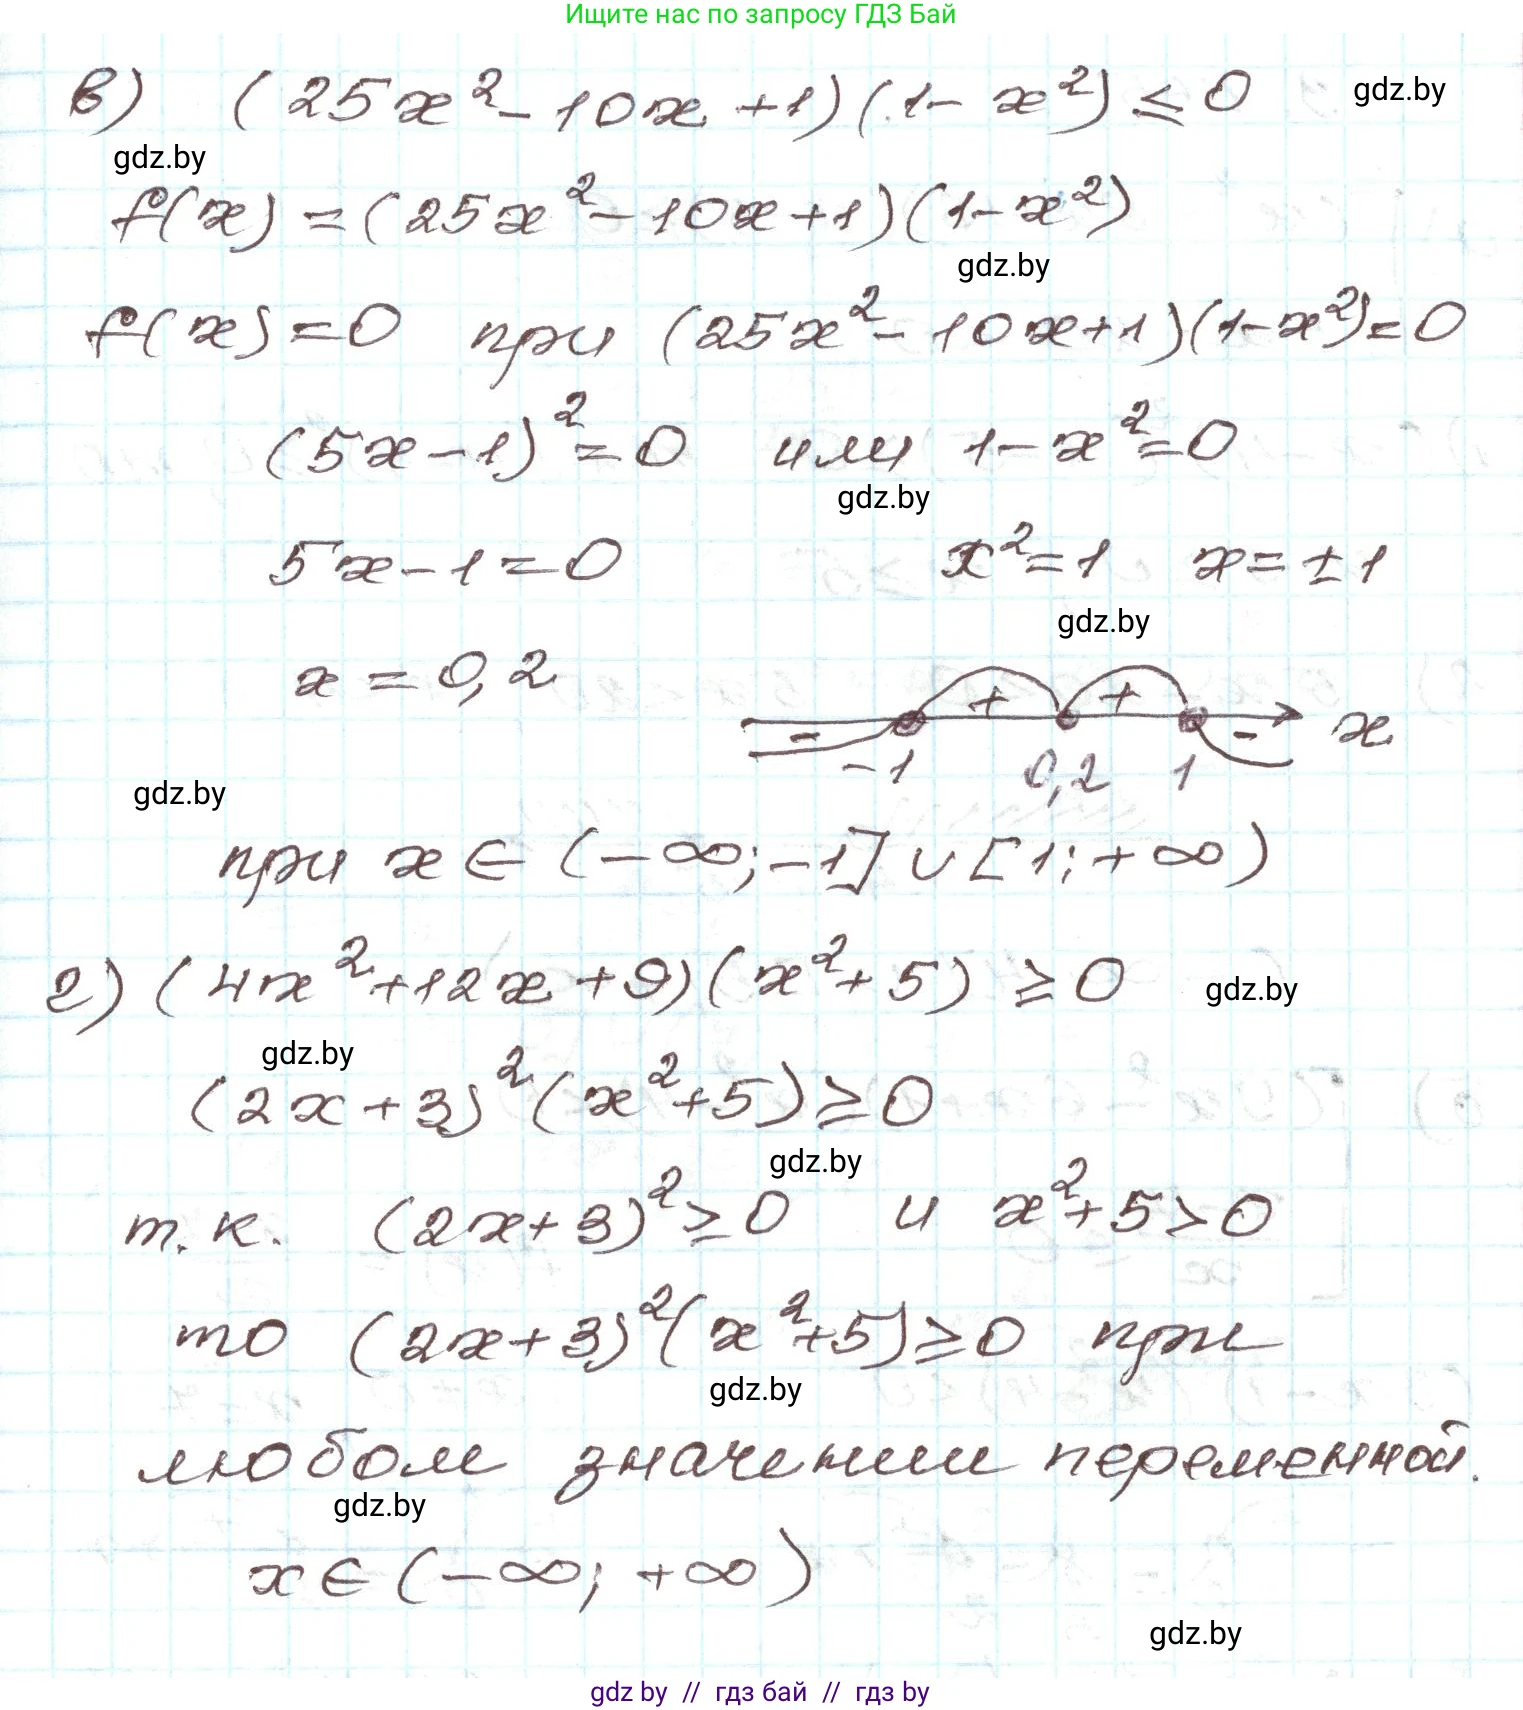 Ищите нас по запросу ГДЗ Бай
в) (25x² - 10x + 1)(1 - x²) ≤ 0 gdz.by
gdz.by
f(x) = (25x² - 10x + 1)(1 - x²)
gdz.by
f(x) = 0 при (25x² - 10x + 1)(1 - x²) = 0
(5x - 1)² = 0 или 1 - x² = 0
gdz.by
5x - 1 = 0 x² = 1 x = ± 1
gdz.by
x = 0,2
- + + - x
-1 0,2 1
gdz.by
при x ∈ (-∞; -1] ∪ [1; +∞)
г) (4x² + 12x + 9)(x² + 5) ≥ 0 gdz.by
gdz.by
(2x + 3)² (x² + 5) ≥ 0
gdz.by
т.к. (2x + 3)² ≥ 0 и x² + 5 > 0
то (2x + 3)² (x² + 5) ≥ 0 при
gdz.by
любом значении переменной.
gdz.by
x ∈ (-∞; +∞)
gdz.by
gdz by // гдз бай // гдз by